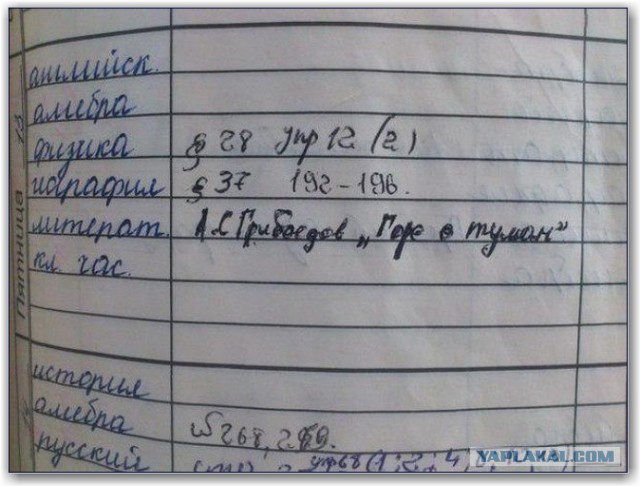 Пятница
английск.
алгебра
физика § 28 упр 12 (2)
география § 37 192-196.
литерат. А С Грибоедов „Горе о туман"
кл. час.
история
алгебра № 268, 269.
русский упр68 (1; 2; 4)
YAPLAKAL.COM